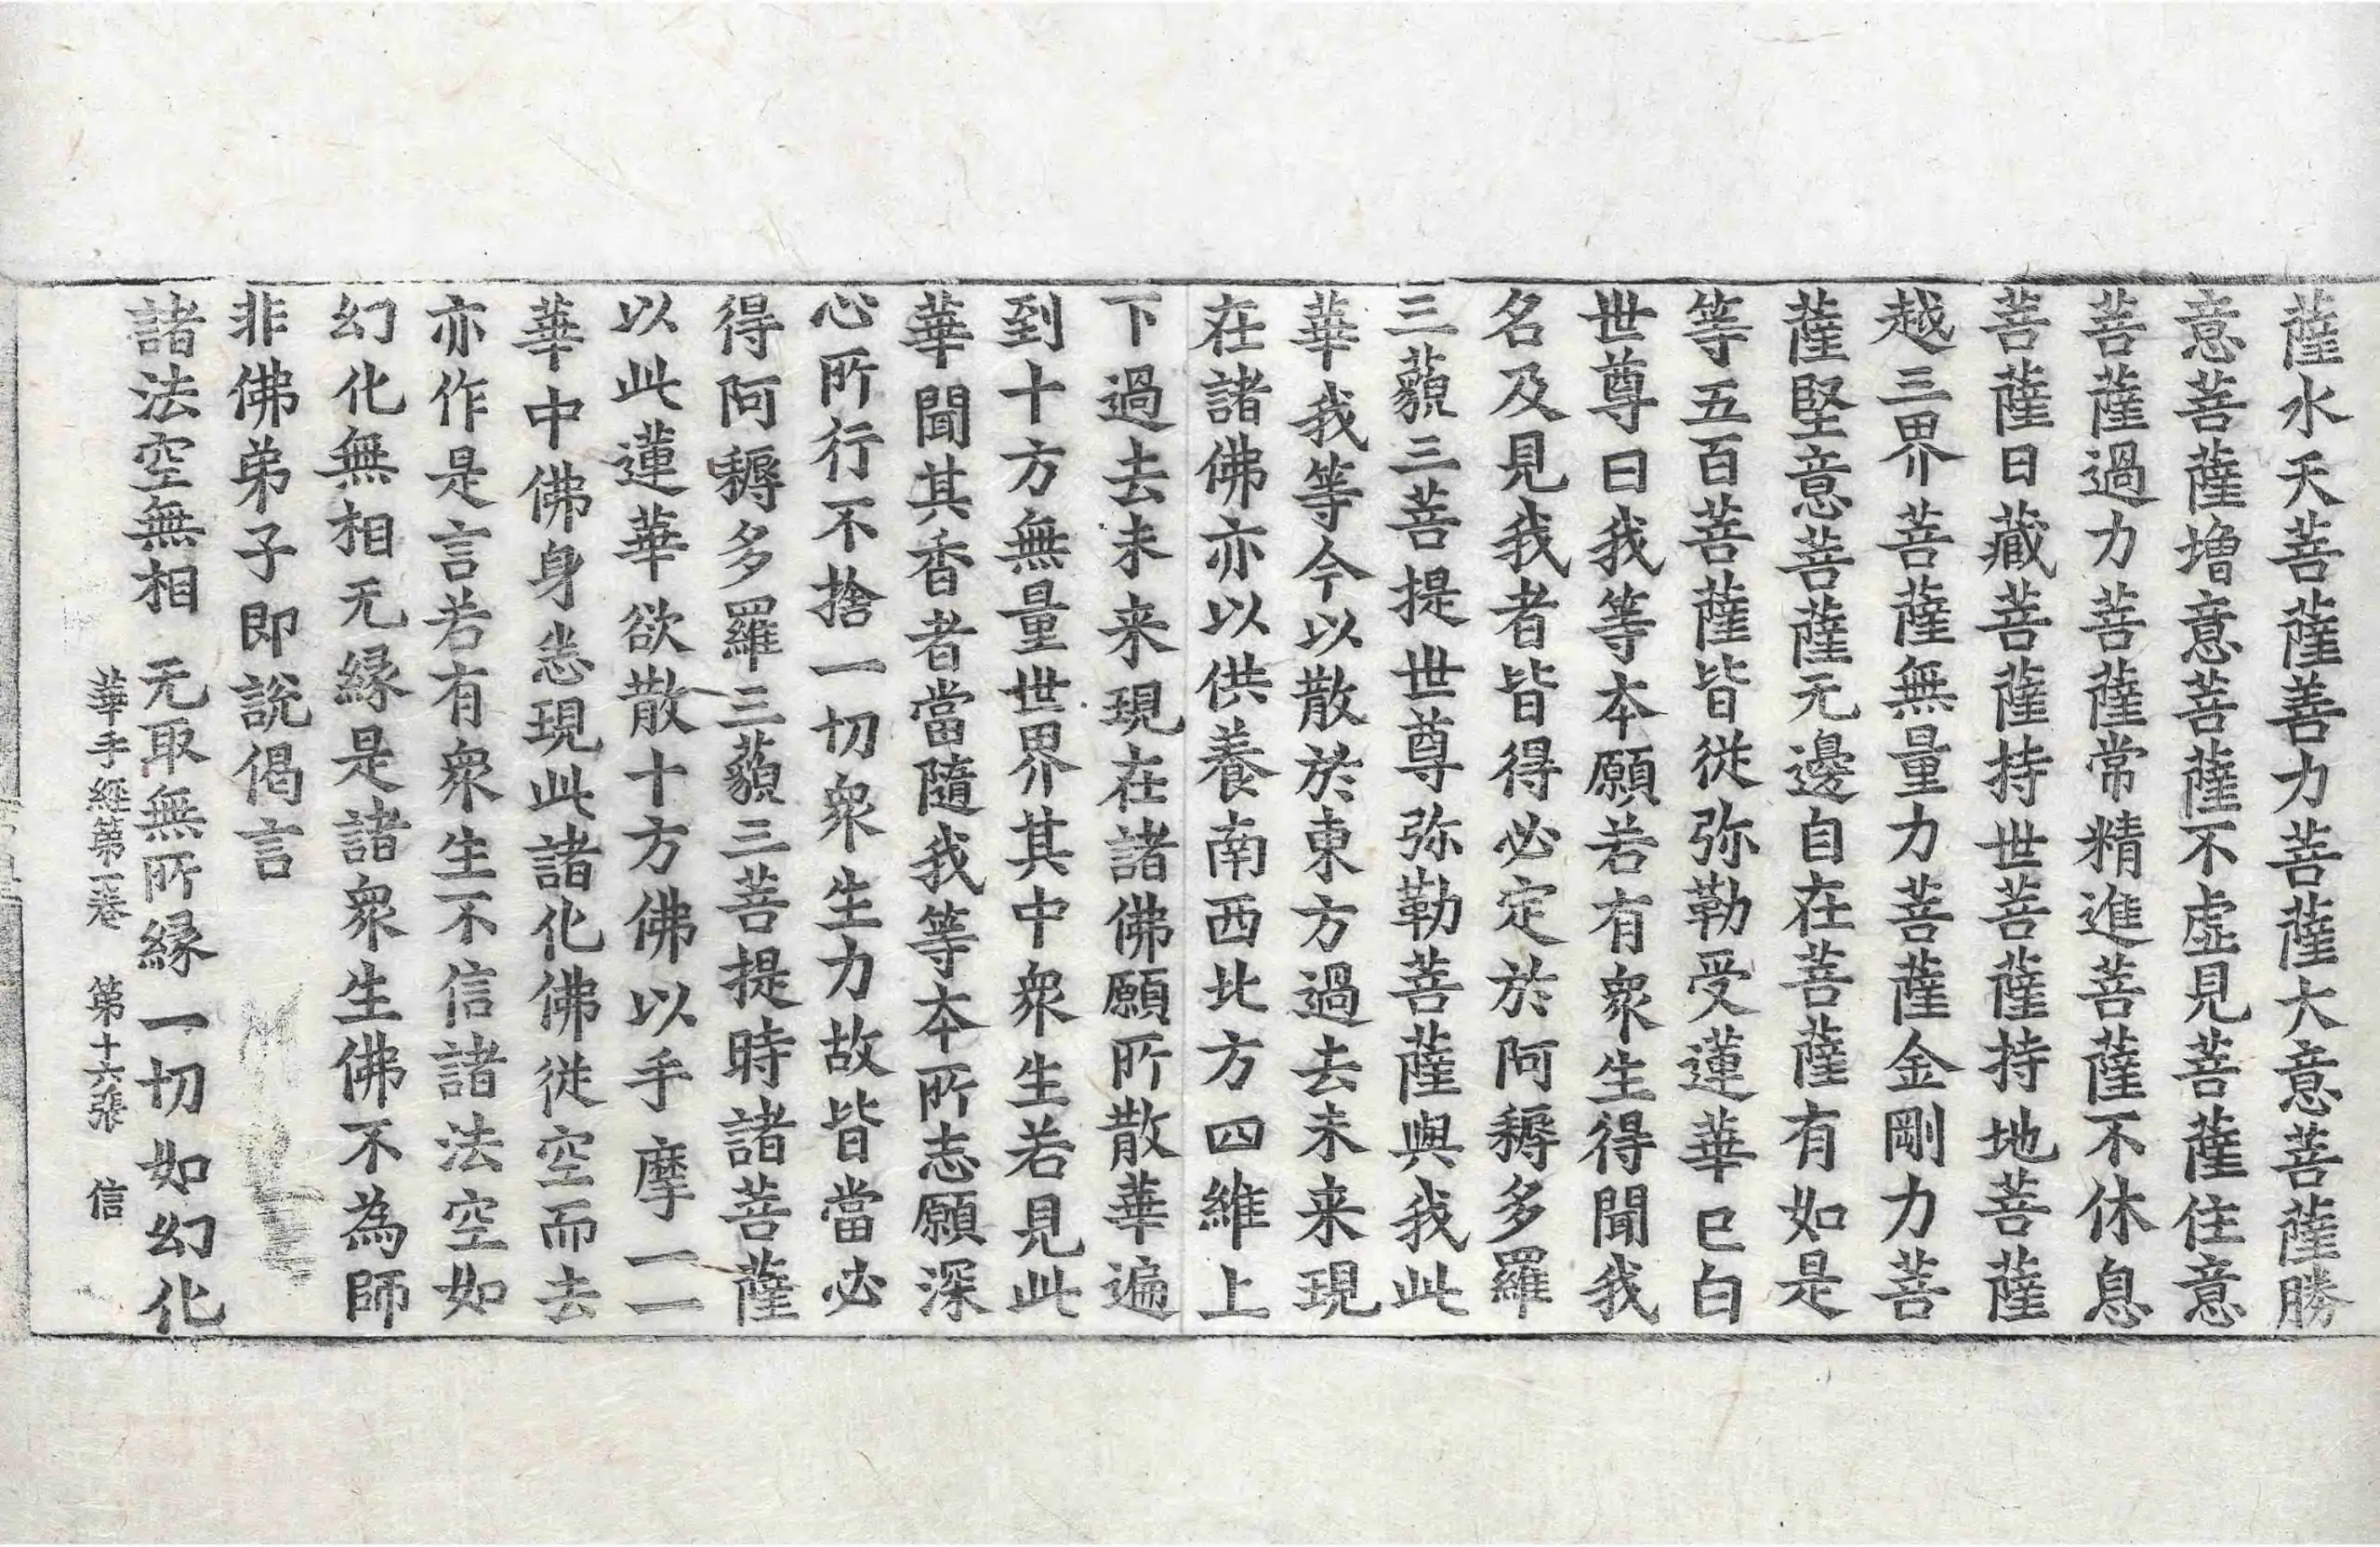 薩水天菩薩善力菩薩大意菩薩勝
意菩薩増意菩薩不虛見菩薩住意
菩薩過力菩薩常精進菩薩不休息
菩薩日藏菩薩持世菩薩持地菩薩
越三界菩薩無量力菩薩金剛力菩
薩堅意菩薩无邊自在菩薩有如是
等五百菩薩皆從弥勒受蓮華已白
世尊曰我等本願若有衆生得聞我
名及見我者皆得必定於阿耨多羅
三藐三菩提世尊弥勒菩薩與我此
華我等今以散於東方過去未来現
在諸佛亦以供養南西北方四維上
下過去未来現在諸佛願所散華遍
到十方無量世界其中衆生若見此
華聞其香者當隨我等本所志願深
心所行不捨一切衆生力故皆當必
得阿耨多羅三藐三菩提時諸菩薩
以此蓮華欲散十方佛以手摩一一
華中佛身悉現此諸化佛從空而去
亦作是言若有衆生不信諸法空如
幻化無相无縁是諸衆生佛不為師
非佛弟子即說偈言
諸法空無相　无取無所縁一切如幻化
華手經第一卷　第十六張　信